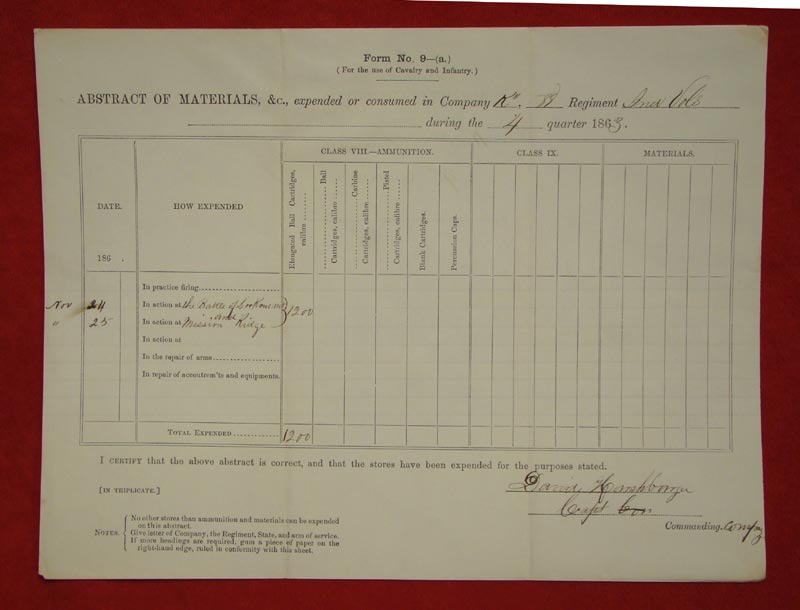 Form No. 9—(a.)
(For the use of Cavalry and Infantry.)
ABSTRACT OF MATERIALS, &c., expended or consumed in Company K", Regiment Ind Vols
during the 4 quarter 1863.
DATE.
186 .
HOW EXPENDED
CLASS VIII.—AMMUNITION.
CLASS IX.
MATERIALS.
Elongated Ball Cartridges, calibre
Ball Cartridges, calibre
Carbine Cartridges, calibre
Pistol Cartridges, calibre
Blank Cartridges.
Percussion Caps.
In practice firing
Nov 24 In action at the Battle of 1200
and
" 25 In action at Mission Ridge
In action at
In the repair of arms
In repair of accoutrem'ts and equipments.
TOTAL EXPENDED 1200
I CERTIFY that the above abstract is correct, and that the stores have been expended for the purposes stated.
[IN TRIPLICATE.]
David Harshbarger
Capt Com
Commanding Compy
NOTES.
No other stores than ammunition and materials can be expended
on this abstract.
Give letter of Company, the Regiment, State, and arm of service.
If more headings are required, gum a piece of paper on the
right-hand edge, ruled in conformity with this sheet.